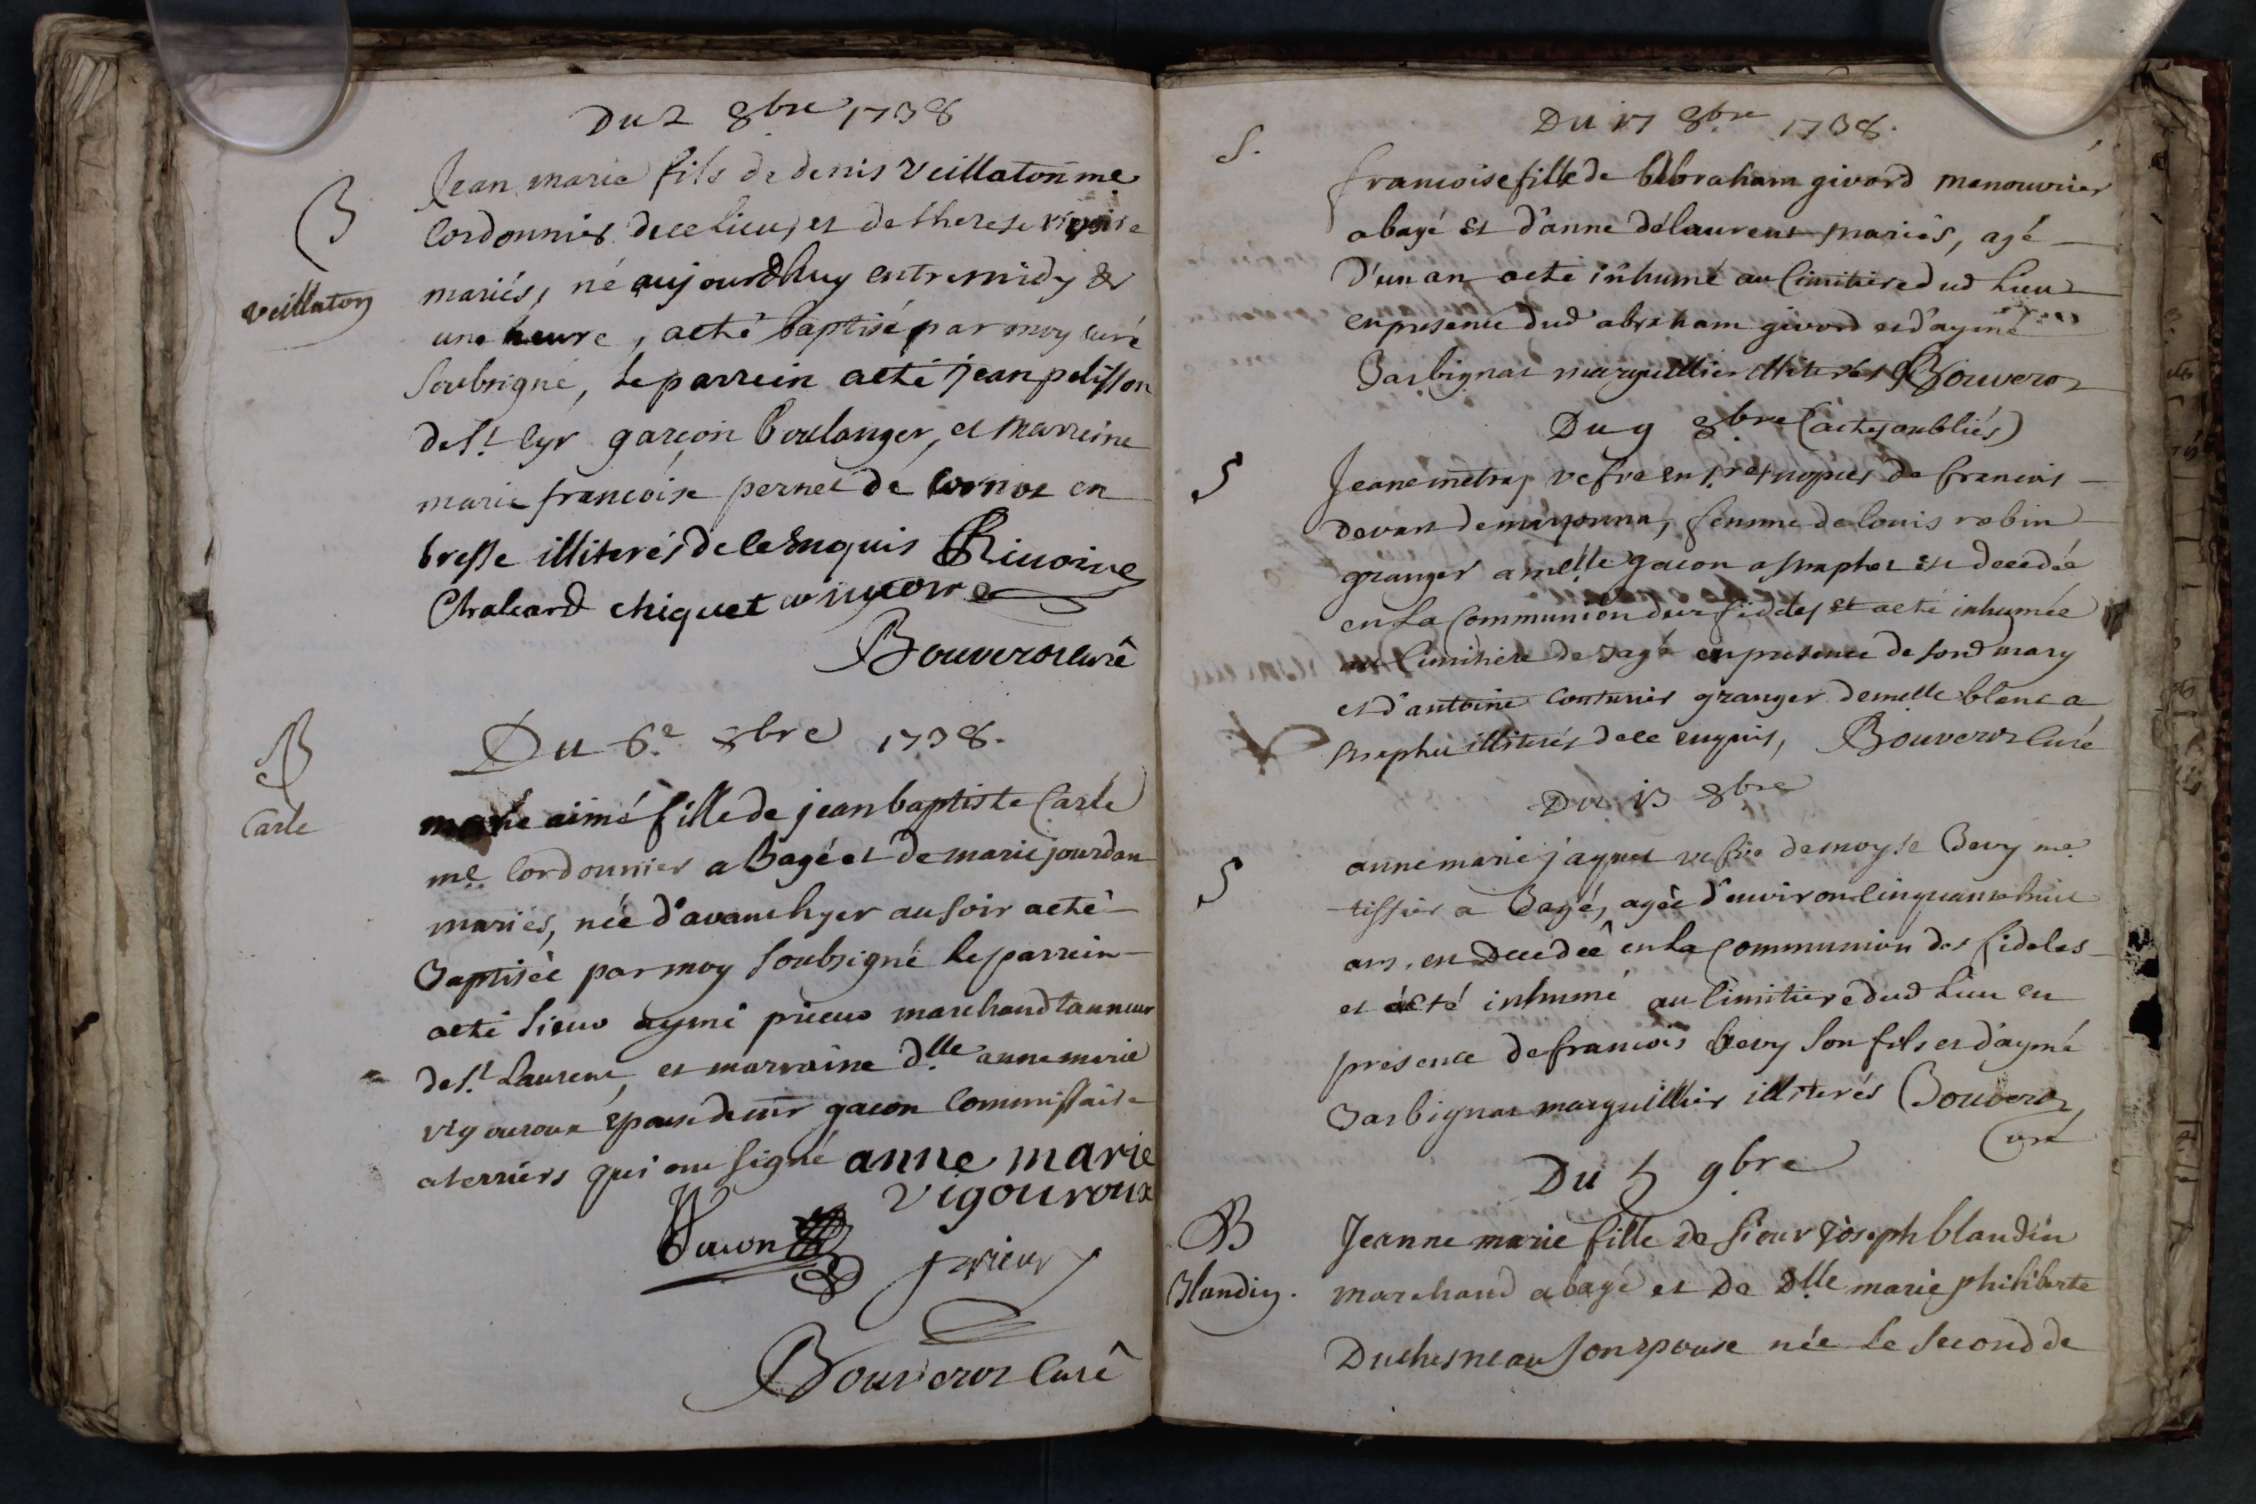 Du 2 8bre 1738
B
veillaton
Jean marie fils de denis veillaton me
Cordonnier de ce lieu, et de therese
mariés, né aujourdhuy entre midy et
une heure, a eté baptisé par moy curé
soubsigné, le parrein a eté jean pelisson
de st. Cyr garçon boulanger, et marreine
marie françoise pernet de cornot en
bresse illiterés de ce enquis Rivoire
Chaleard chiquet
Bouverot curé
B
Carle
Du 6e 8bre 1738.
marie aimé fille de jean baptiste Carle
me. Cordonnier a Bagé et de marie jourdan
mariés, née d'avant hyer au soir a eté
Baptisée par moy soubsigné le parrein
a eté sieur aymé prieur marchand tanneur
de st. Laurent, et marraine dlle anne marie
vigouroux épouse de mr gacon Commissaire
a terriers qui ont signé anne marie
vigouroux
Gacon prieur
Bouverot Curé
Du 17 8bre 1738.
S.
francoise fille de abraham givord manouvrier
a bagé et d'anne delaurent mariés, agé
d'un an a eté inhumé au Cimitiere dud Lieu
en presence dud abraham givord et d'aymé
Barbignat marguillier illiterés Bouverot
Du 9 8bre (actes oubliés)
S
Jeane metras vefve en 1.res nopces de francois
devant femme de louis robin
granger a melle gacon a est decedée
en la Communion des fideles et a eté inhumée
au Cimitiere de Bagé en presence de sond mary
et d'antoine couturier granger de melle blanc a
illiterés de ce enquis, Bouverot Curé
Du 13 8bre
S
anne marie jaquet vefve de moyse Bevy me.
tissier a Bagé, agée d'environ cinquante huit
ans, est decedée en la Communion des fideles
et a eté inhumé au Cimitiere dud Lieu en
presence de francois bevy son fils et d'aymé
Barbignat marguillier illiterés Bouverot
Curé
Du 5 9bre
B
Blandin.
Jeanne marie fille de sieur joseph blandin
marchand a bagé et de Dlle marie philiberte
Duchesneau son epouse née le second de